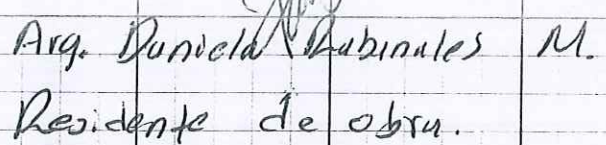 Arq. Daniela Rabinales M.
Residente de obra.